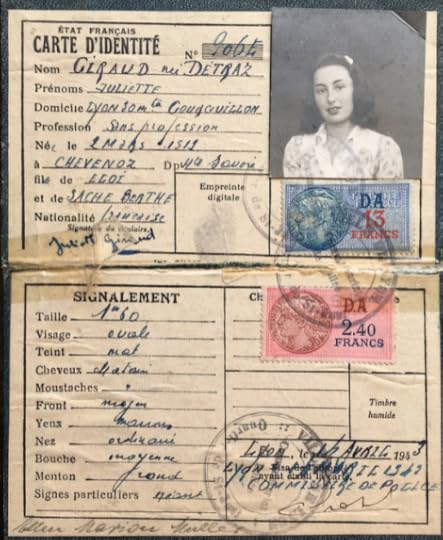 ÉTAT FRANÇAIS
CARTE D'IDENTITÉ
N° 2064
Nom GIRAUD née DETRAZ
Prénoms JULIETTE
Domicile Lyon 30 mtée Gourguillon
Profession Sans profession
Née le 2 MARS 1919
à CHEVENOZ Dpt Hte Savoie
fille de ELOI
et de SACHE BERTHE
Nationalité française
Signature du titulaire.
Juliette Giraud
Empreinte
digitale
DA
13
FRANCS
SIGNALEMENT
Taille 1m60
Visage ovale
Teint mat
Cheveux chatain
Moustaches
Front moyen
Yeux marrons
Nez ordinaire
Bouche moyenne
Menton rond
Signes particuliers néant
DA
2.40
FRANCS
Timbre
humide
Lyon, le 14 AVRIL 1943
LYON
ayant établi la carte
COMMISSAIRE DE POLICE
Marion Muller